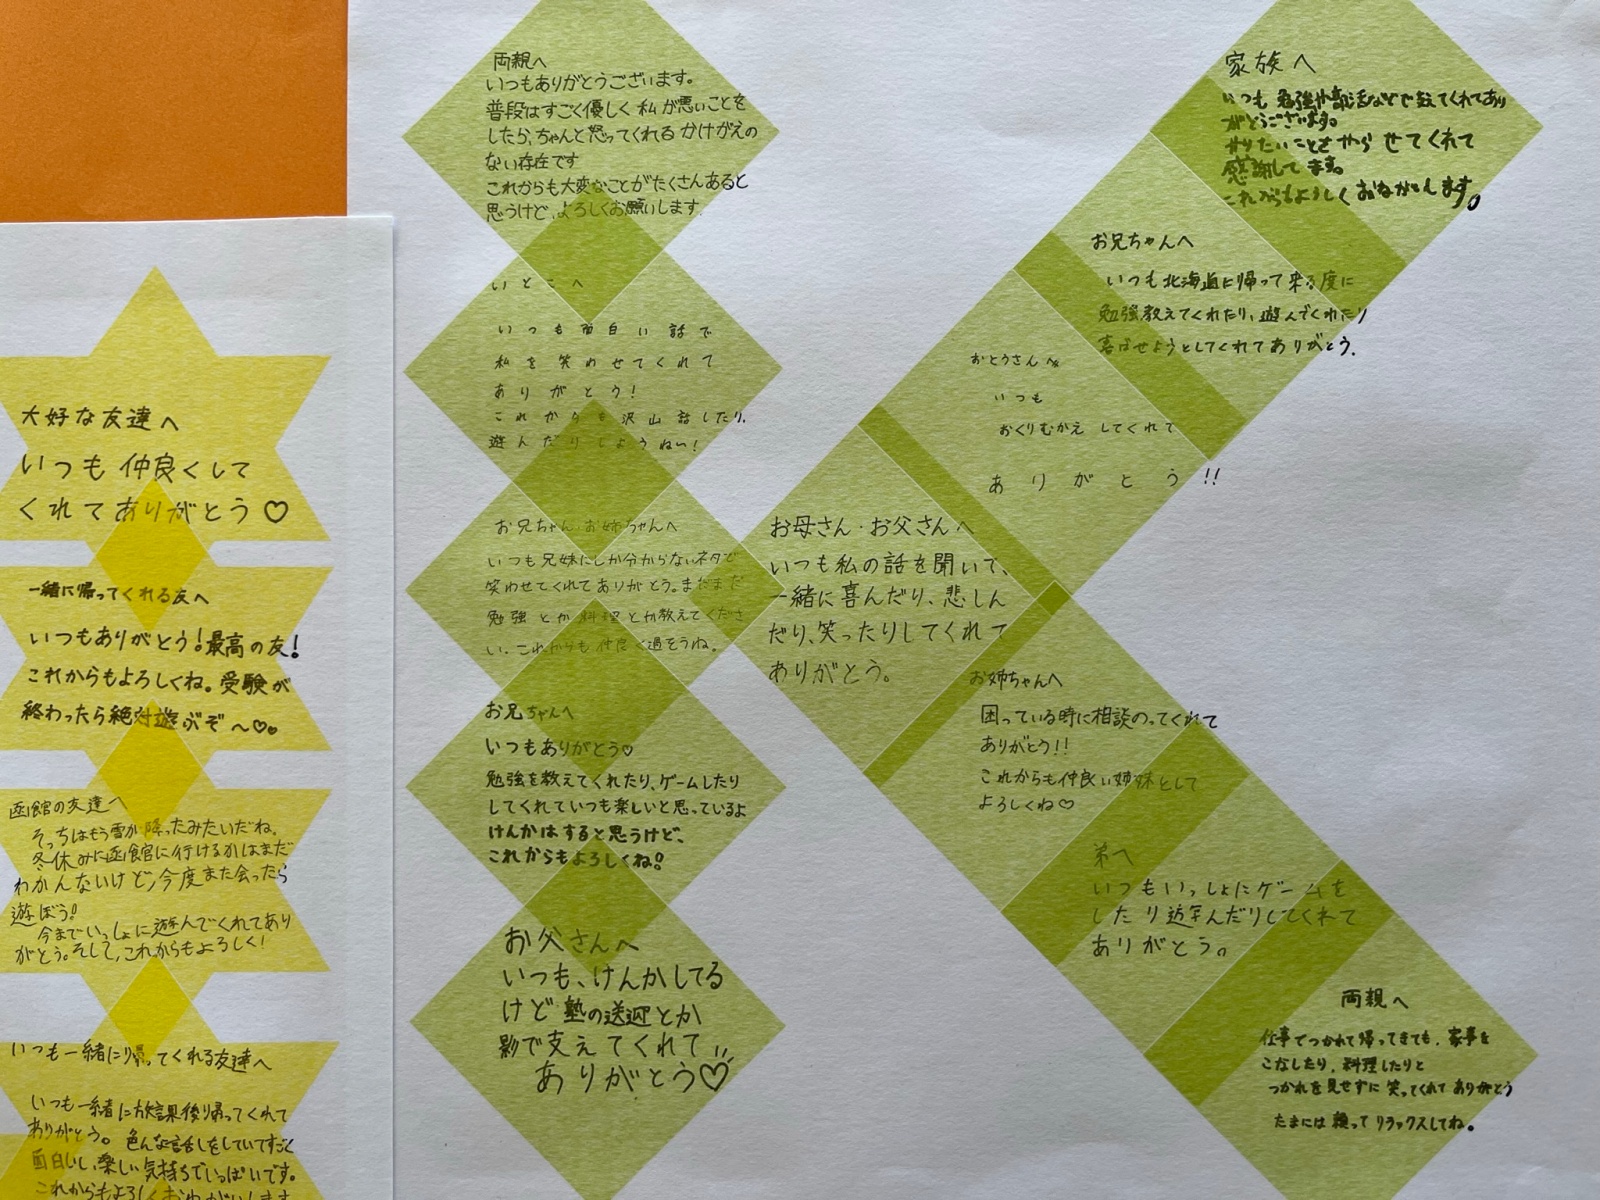 大好な友達へ
いつも仲良くして
くれてありがとう♡
一緒に帰ってくれる友へ
いつもありがとう!最高の友!
これからもよろしくね。受験が
終わったら絶対遊ぶぞ〜♡♡
函館の友達へ
そっちはもう雪が降ったみたいだね。
冬休みに函館に行けるかはまだ
わかんないけど、今度また会ったら
遊ぼう!
今までいっしょに遊んでくれてあり
がとう。そして、これからもよろしく!
いつも一緒に帰ってくれる友達へ
いつも一緒に放課後帰ってくれて
ありがとう。色んな話しをしていてすごく
面白いし、楽しい気持ちでいっぱいです。
これからもよろしくおねがいします
両親へ
いつもありがとうございます。
普段はすごく優しく私が悪いことを
したら、ちゃんと怒ってくれるかけがえの
ない存在です
これからも大変なことがたくさんあると
思うけど、よろしくお願いします。
いとこへ
いつも面白い話で
私を笑わせてくれて
ありがとう!
これからも沢山話したり、
遊んだりしようねい!
お兄ちゃん・お姉ちゃんへ
いつも兄妹にしか分からないネタで
笑わせてくれてありがとう。まだまだ
勉強とか料理とか教えてくださ
い。これからも仲良く過そうね。
お兄ちゃんへ
いつもありがとう♡
勉強を教えてくれたり、ゲームしたり
してくれていつも楽しいと思っているよ
けんかはすると思うけど、
これからもよろしくね!
お父さんへ
いつも、けんかしてる
けど塾の送迎とか
影で支えてくれて
ありがとう♡
家族へ
いつも勉強や部活などで支えてくれてあり
がとうございます。
やりたいことをやらせてくれて
感謝してます。
これからもよろしくおねがいします。
お兄ちゃんへ
いつも北海道に帰って来る度に
勉強教えてくれたり、遊んでくれたり
喜ばせようとしてくれてありがとう。
おとうさんへ
いつも
おくりむかえしてくれて
ありがとう!!
お母さん・お父さんへ
いつも私の話を聞いて、
一緒に喜んだり、悲しん
だり、笑ったりしてくれて
ありがとう。
お姉ちゃんへ
困っている時に相談のってくれて
ありがとう!!
これからも仲良い姉妹として
よろしくね♡
弟へ
いつもいっしょにゲームを
したり遊んだりしてくれて
ありがとう。
両親へ
仕事でつかれて帰ってきても、家事を
こなしたり、料理したりと
つかれを見せずに笑ってくれてありがとう
たまには頼ってリラックスしてね。